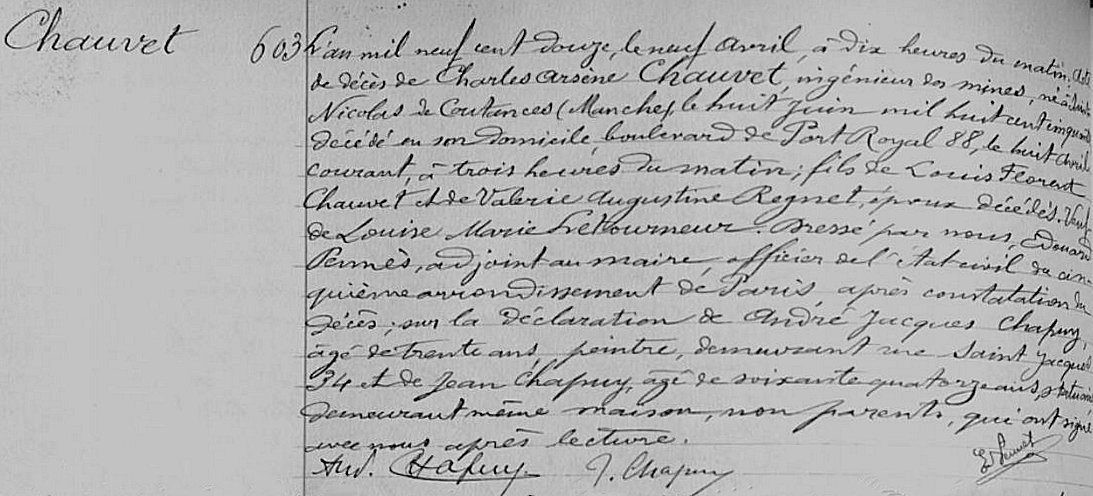 Chauvet
603 L'an mil neuf cent douze, le neuf Avril, à dix heures du matin. Acte
de décès de Charles Arsène Chauvet, ingénieur des mines, né à
Nicolas de Coutances (Manche), le huit juin mil huit cent
décédé en son domicile, boulevard de Port Royal 88, le huit Avril
courant, à trois heures du matin; fils de Louis Florent
Chauvet et de Valerie Augustine Regnet, époux décédés. Veuf
de Louise Marie Letourneur. Dressé par nous, Edouard
Pennès, adjoint au maire, officier de l'état civil du cin-
quième arrondissement de Paris, après constatation du
décès; sur la déclaration de André Jacques Chapuy,
âgé de trente ans, peintre, demeurant rue Saint Jacques
34 et de Jean Chapuy, âgé de soixante quatorze ans, statuaire
demeurant même maison, non parents, qui ont signé
avec nous après lecture.
And. Chapuy J. Chapuy